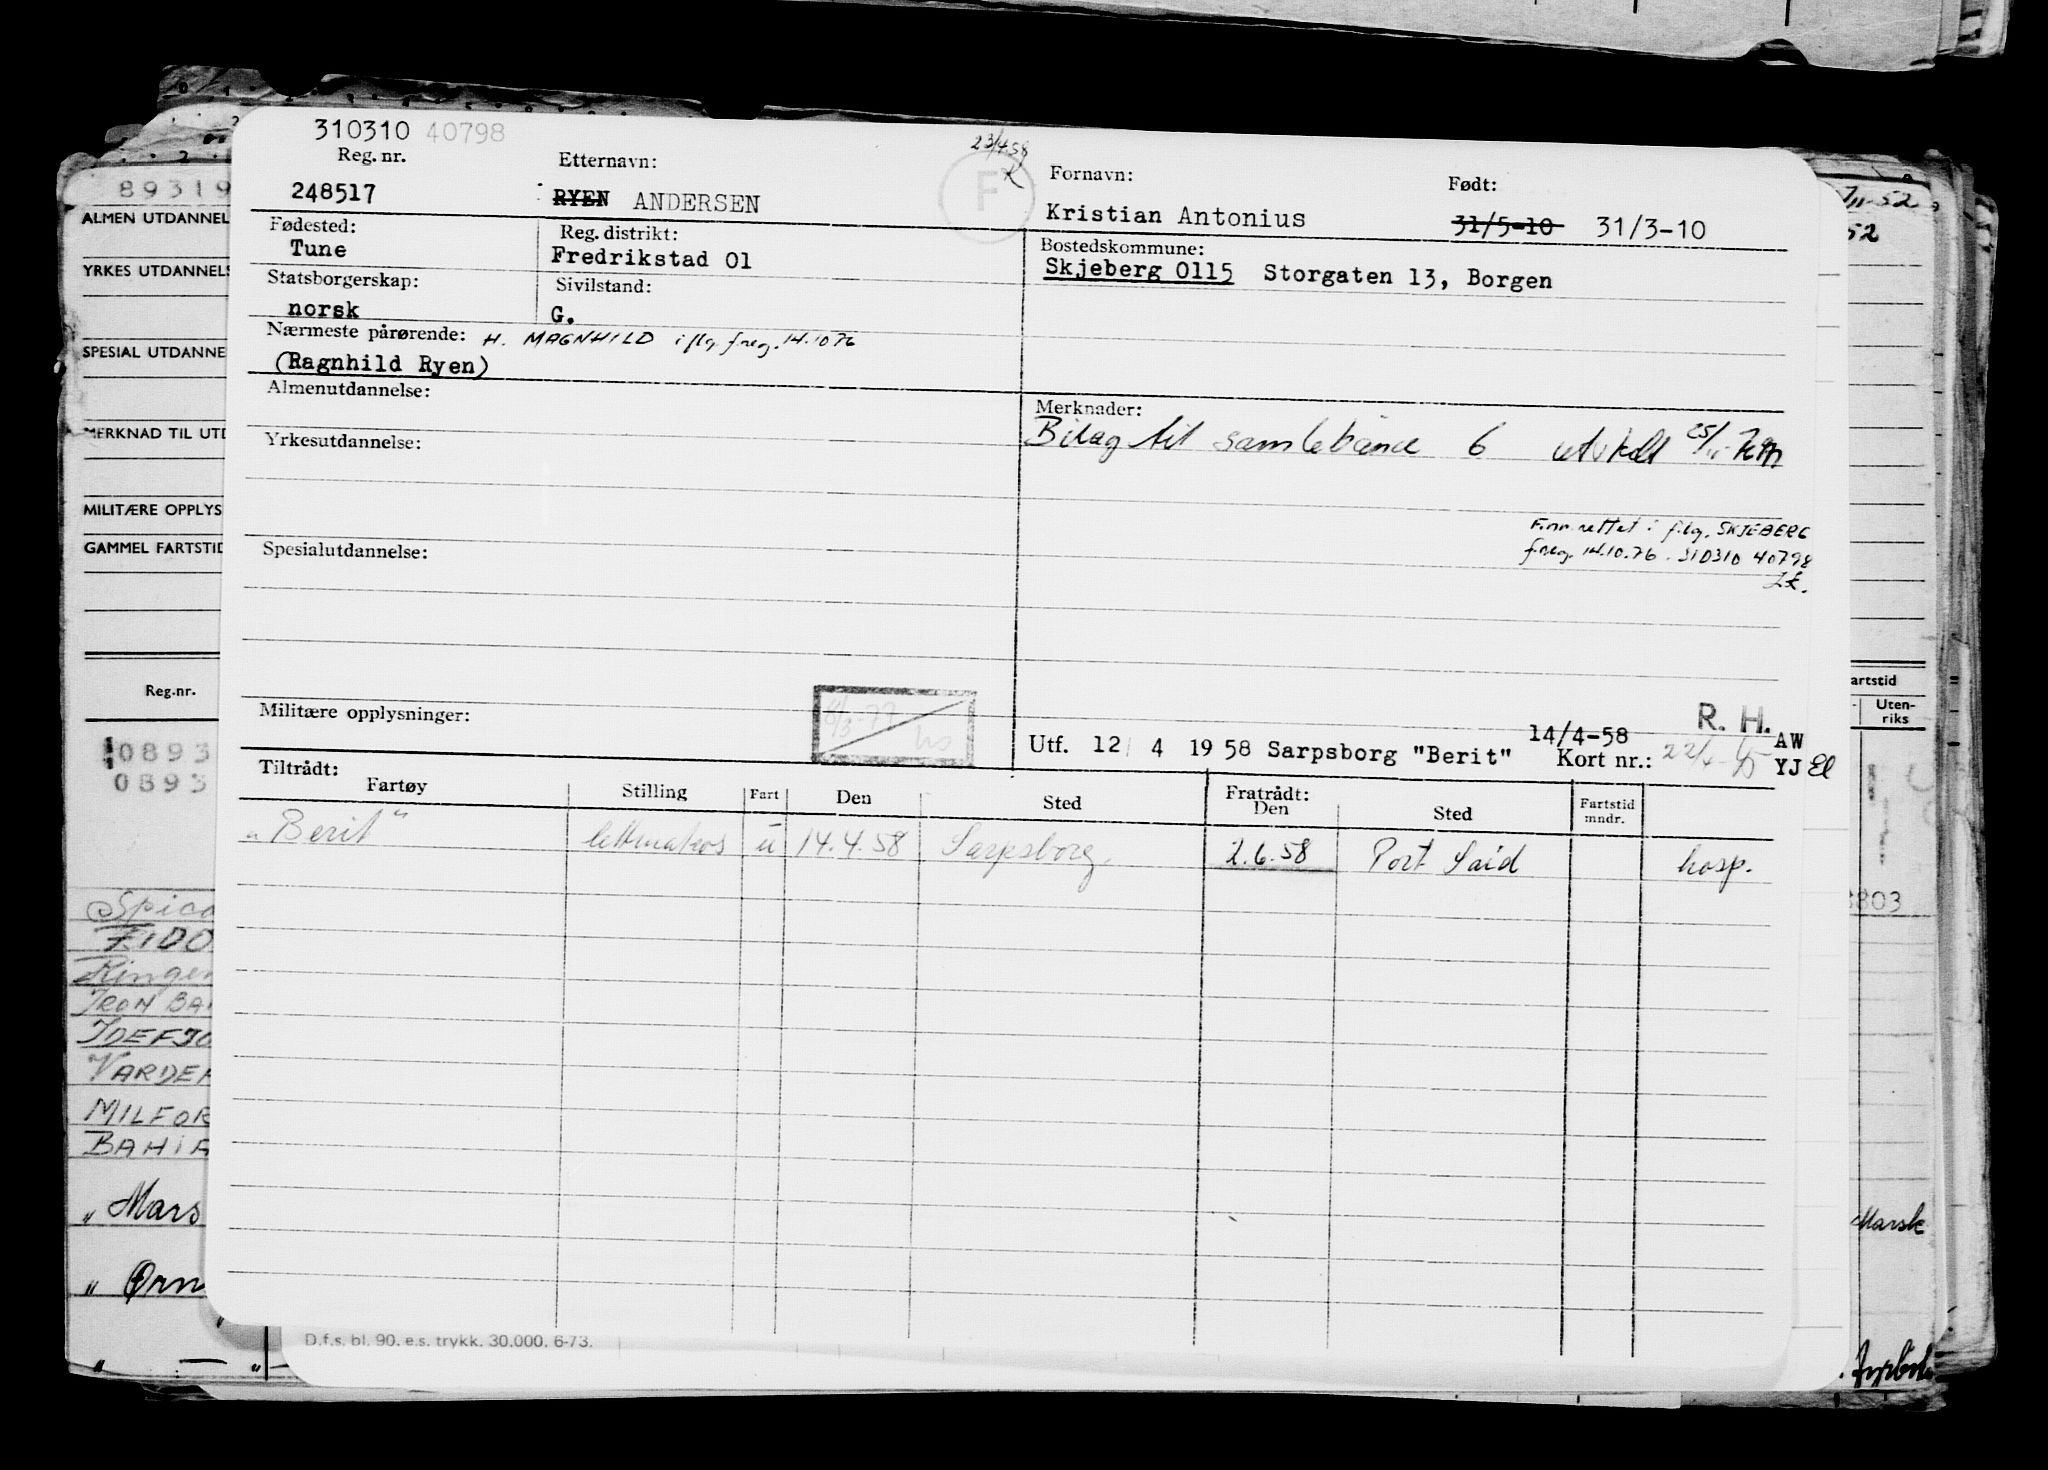 310310 40798
23/4 58
Reg. nr. Etternavn: F Fornavn: Født:
248517 RYEN ANDERSEN Kristian Antonius 31/5-10 31/3-10
Fødested: Reg. distrikt: Bostedskommune:
Tune Fredrikstad 01 Skjeberg 0115 Storgaten 13, Borgen
Statsborgerskap: Sivilstand:
norsk G.
Nærmeste pårørende: H. MAGNHILD iflg. freg. 14.10 76
(Ragnhild Ryen)
Almenutdannelse: Merknader:
Bilag til samlebind 6 utskilt 25/11
Yrkesutdannelse:
rettet i flg. SKJEBERG
freg. 14.10.76. 310310 40798
Spesialutdannelse:
Militære opplysninger:
R. H.
Utf. 12 4 1958 Sarpsborg "Berit" 14/4-58 Kort nr.: 22/4 AW
YJ El
Tiltrådt: Fratrådt:
Fartøy Stilling Fart Den Sted Den Sted Fartstid mndr.
"Berit" lettmatros u 14.4.58 Sarpsborg 2.6.58 Port Said hosp.
D.f.s. bl. 90. e.s. trykk. 30.000. 6-73.
89319
ALMEN UTDANNEL
YRKES UTDANNELS
SPESIAL UTDANNE
MERKNAD TIL UTD
MILITÆRE OPPLYS
GAMMEL FARTSTID
Reg.nr.
0893
0893
Spica
EIDO
Ringer
IRON BA
IDEFJO
VARDE
MILFOR
BAHIA
" Mars
" Ørn
" — "
52
52
artstid
Uten-
riks
8803
Marsk